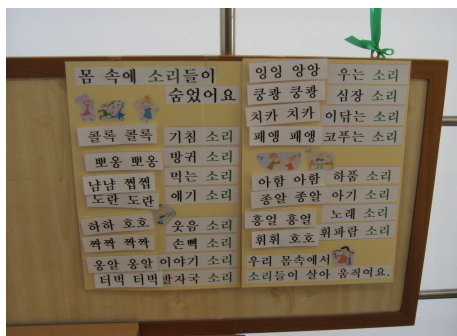 몸 속에 소리들이
숨었어요
콜록 콜록 기침 소리
뽀옹 뽀옹 방귀 소리
냠냠 쩝쩝 먹는 소리
도란 도란 얘기 소리
하하 호호 웃음 소리
짝짝 짝짝 손뼉 소리
옹알 옹알 이야기 소리
터벅 터벅 발자국 소리
잉잉 앙앙 우는 소리
쿵쾅 쿵쾅 심장 소리
치카 치카 이닦는 소리
패앵 패앵 코푸는 소리
아함 아함 하품 소리
종알 종알 아기 소리
흥얼 흥얼 노래 소리
휘휘 호호 휘파람 소리
우리 몸속에서
소리들이 살아 움직여요.